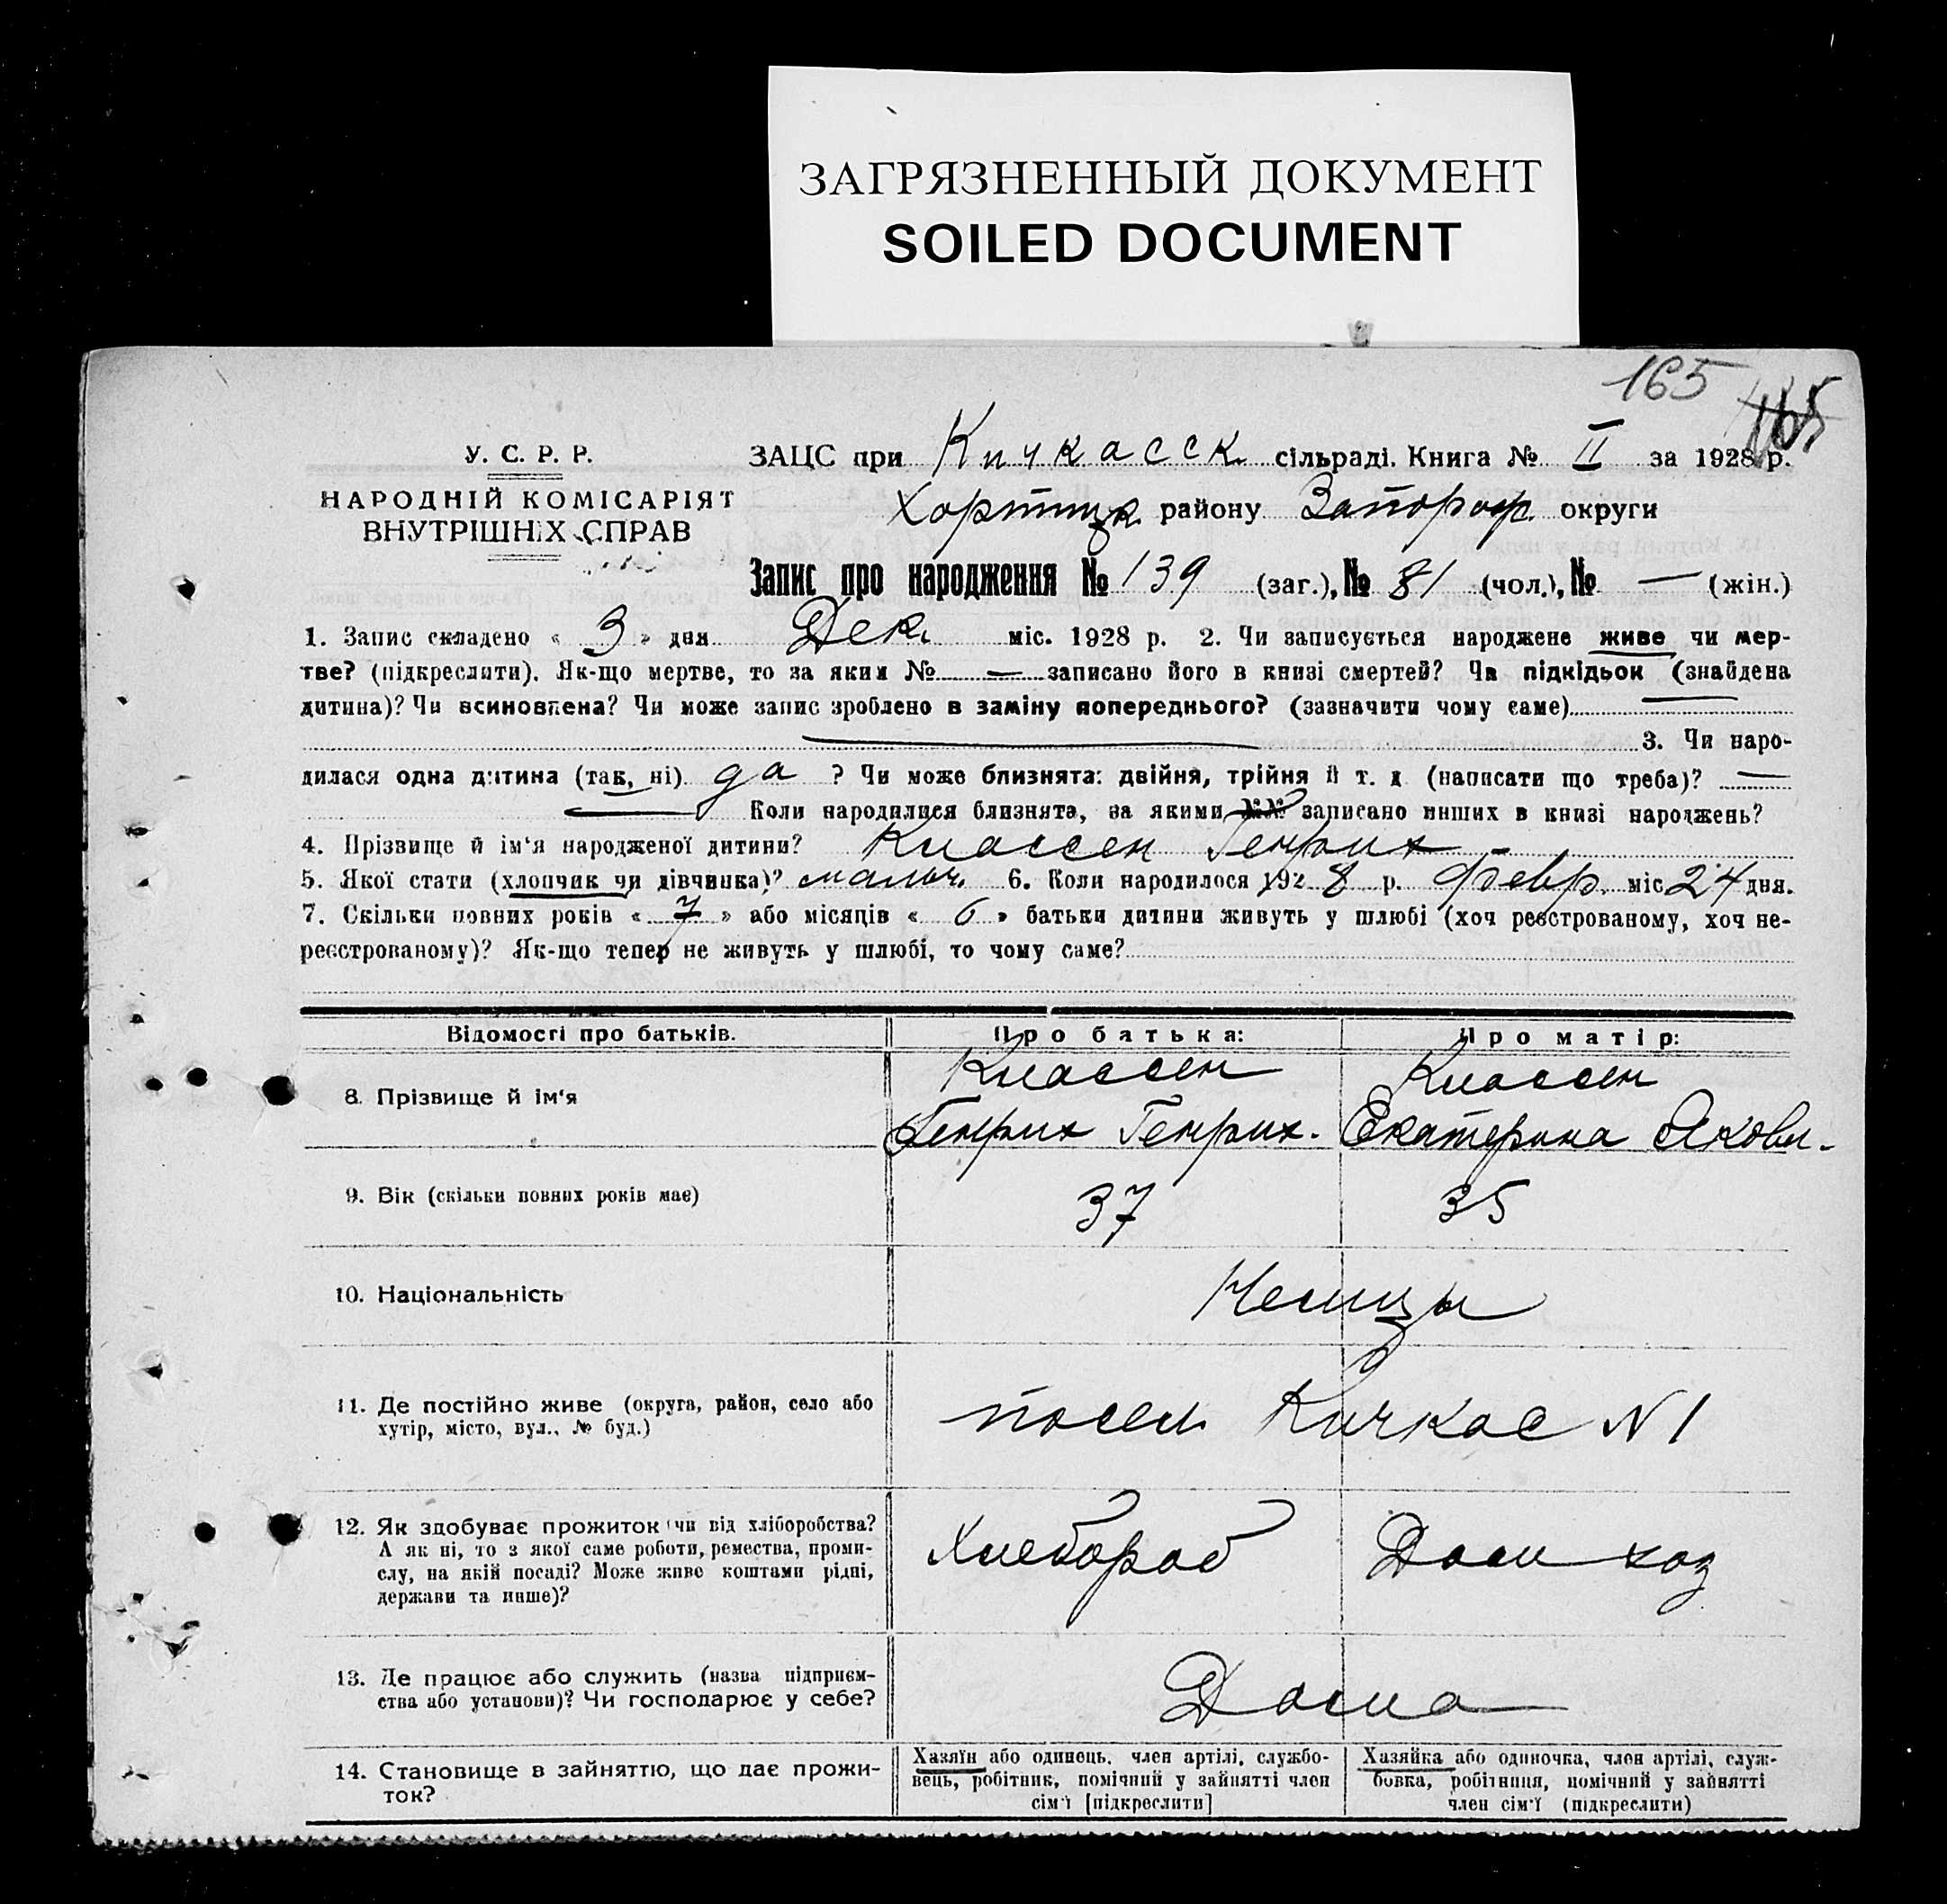 ЗАГРЯЗНЕННЫЙ ДОКУМЕНТ
SOILED DOCUMENT
165
165
У. С. Р. Р.
НАРОДНІЙ КОМІСАРІЯТ
ВНУТРІШНІХ СПРАВ
ЗАЦС при Кичкасск. сільраді. Книга № II за 1928 р.
Хортицк. району Запорож. округи
Запис про народження № 139 (заг.), № 81 (чол.), № — (жін.)
1. Запис складено « 3 » дня Дек. міс. 1928 р. 2. Чи записується народжене живе чи мер-
тве? (підкреслити). Як-що мертве, то за яким № — записано його в книзі смертей? Чи підкідьок (знайдена
дитина)? Чи всиновлена? Чи може запис зроблено в заміну попереднього? (зазначити чому саме) —
— 3. Чи наро-
дилася одна дитина (так, ні) да ? Чи може близнята: двійня, трійня й т. д (написати що треба)? —
— Коли народилися близнята, за якими №№ записано инших в книзі народжень?
4. Прізвище й ім'я народженої дитини? Классен Генрих
5. Якої стати (хлопчик чи дівчинка)? мальч. 6. Коли народилося 1928 р. Февр. міс 24 дня.
7. Скільки повних років « 7 » або місяців « 6 » батьки дитини живуть у шлюбі (хоч реєстрованому, хоч не-
реєстрованому)? Як-що тепер не живуть у шлюбі, то чому саме?
Відомості про батьків. Про батька: Про матір:
8. Прізвище й ім'я Классен Генрих Генрих. Классен Екатерина Яковл.
9. Вік (скільки повних років має) 37 35
10. Національність Немцы
11. Де постійно живе (округа, район, село або
хутір, місто, вул., № буд.) посел. Кичкас N 1
12. Як здобуває прожиток (чи від хліборобства?
А як ні, то з якої саме роботи, ремества, проми-
слу, на якій посаді? Може живе коштами рідні,
держави та инше)? Хлебороб Дом хоз
13. Де працює або служить (назва підприєм-
ства або установи)? Чи господарює у себе? Дома
14. Становище в зайняттю, що дає прожи-
ток?
Хазяїн або одинець, член артілі, службо-
вець, робітник, помічний у зайнятті член
сім'ї [підкреслити]
Хазяйка або одиночка, член артілі, служ-
бовка, робітниця, помічний у зайнятті
член сім'ї (підкреслити)